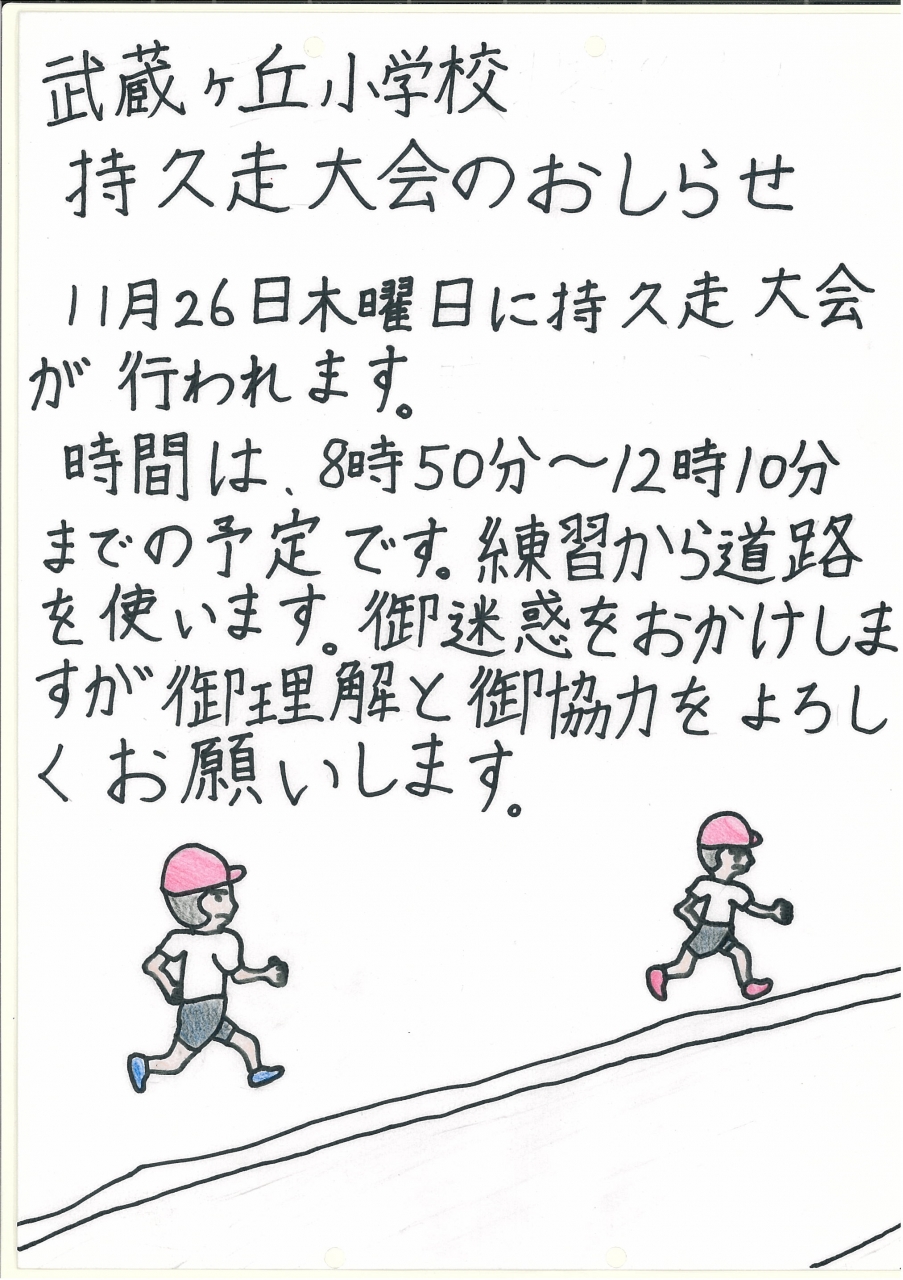 武蔵ヶ丘小学校
持久走大会のおしらせ
11月26日木曜日に持久走大会
が行われます。
時間は、8時50分～12時10分
までの予定です。練習から道路
を使います。御迷惑をおかけしま
すが御理解と御協力をよろし
くお願いします。